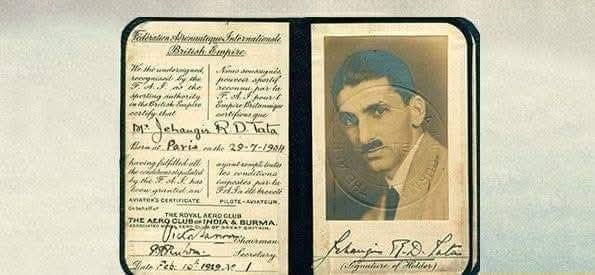 Fédération Aéronautique Internationale
British Empire
We the undersigned,
recognised by the
F.A.I. as the
sporting authority
in the British Empire
certify that
Nous soussignés,
pouvoir sportif
reconnu par la
F.A.I. pour l'
Empire Britannique
certifions que
Mr. Jehangir R. D. Tata
Born at Paris on the 29-7-1904
having fulfilled all
the conditions stipulated
by the F.A.I. has
been granted an
AVIATOR'S CERTIFICATE
ayant rempli toutes
les conditions
imposées par la
F.A.I. a été breveté
PILOTE-AVIATEUR.
On behalf of
THE ROYAL AERO CLUB
THE AERO CLUB OF INDIA & BURMA.
ASSOCIATED ROYAL AERO CLUB OF GREAT BRITAIN.
Chairman
Secretary.
Date Feb. 10th 1929. No 1
Jehangir R. D. Tata
(Signature of Holder)